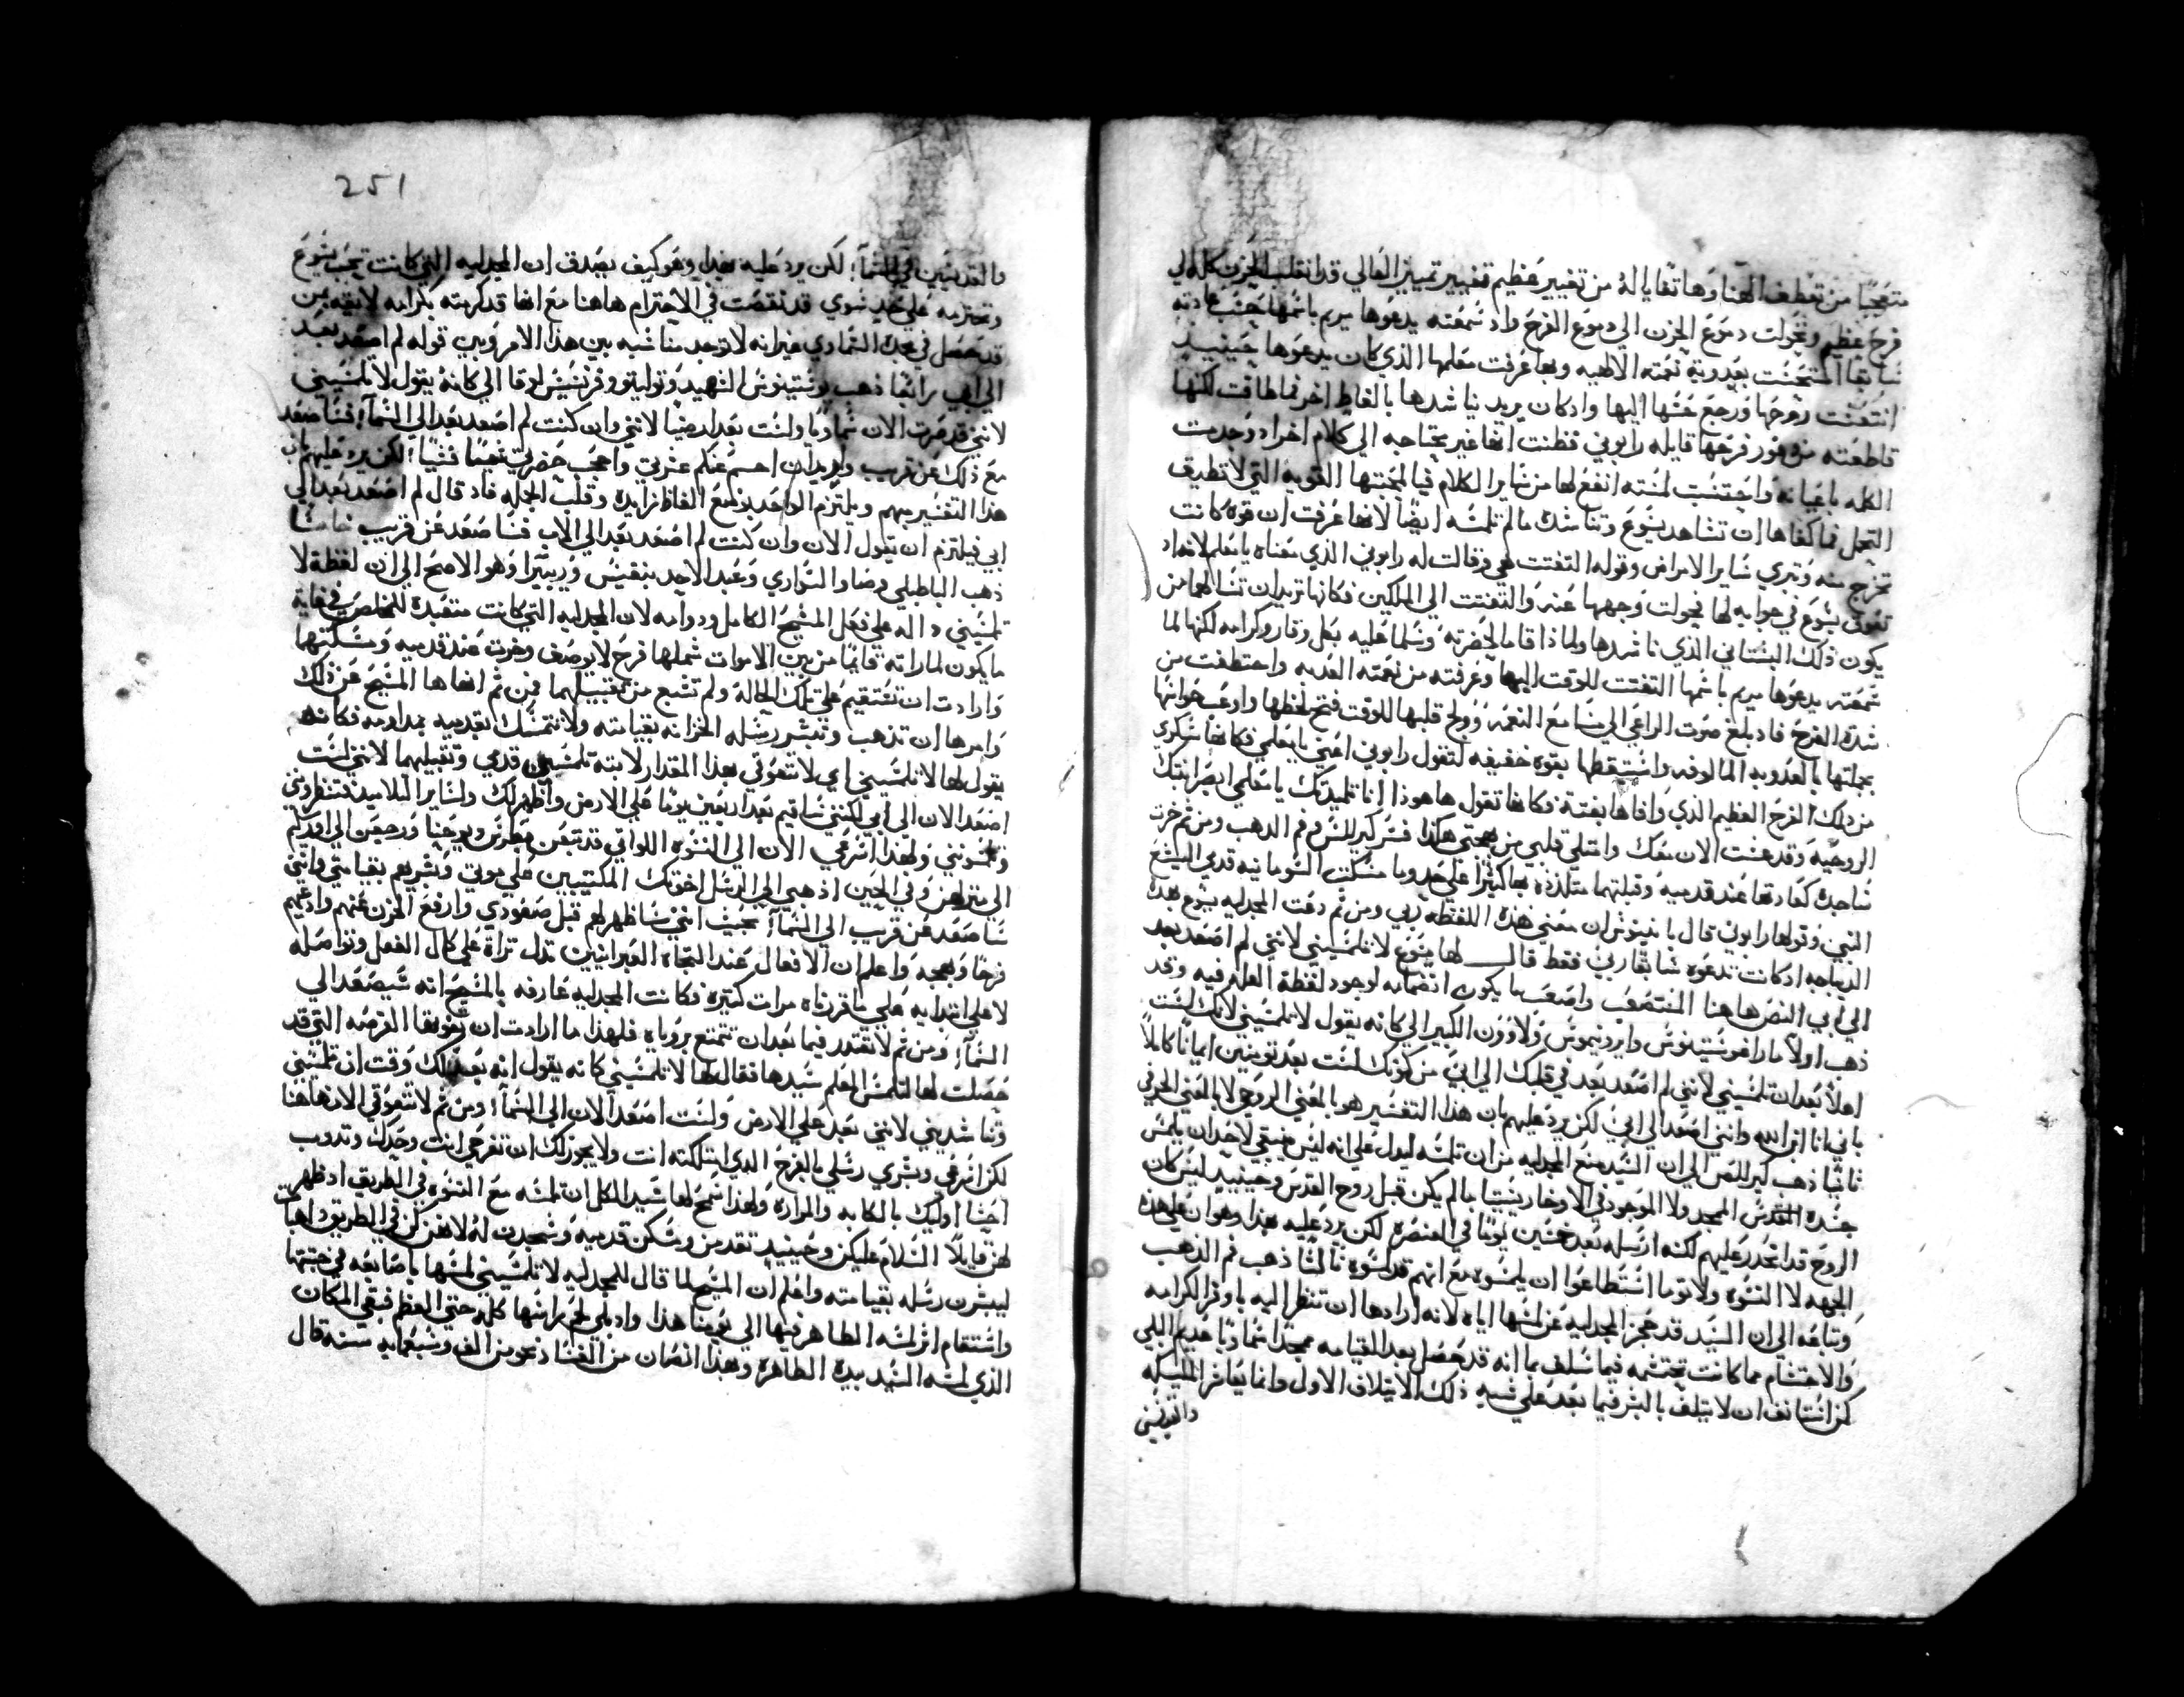 متعجبًا من تعطف الهنا وهاتفًا يا له من تغيير عظيم فتغيير تمييز العالي قد انقلب الحزن كله الي
فرح عظيم وتحولت دموع الحزن الي دموع الفرح واد سمعته يدعوها مريم باسمها حسب عادته
سابقًا انتعشت بعدوبة نغمته الالهيه وبها عرفت معلمها الذي كان يدعوها حينييد
انتعشت روحها ورجع حسها اليها واد كان يريد يناشدها بالفاظ اخر فما طاقت لكنها
قاطعته من فور فرحها قايله رابوني فظنت انها غير محتاجه الي كلام اخر اد وجدت
الكلمه باعيانه واحتسبت لمسته انفع لها من ساير الكلام فيا لمحبتها القويه التي لا تطيق
التمهل فما كفاها ان تشاهد يسوع وتناشده ما لم تلمسه ايضًا لانها عرفت ان قوه كانت
تخرج منه وتبري ساير الامراض وقوله التفتت هي وقالت له رابوني الذي معناه يا معلم لانه اد
تعوق يسوع في جوابه لها تحولت وجهها عنه والتفتت الي الملكين فكانها تريد ان تسالهما من
يكون ذلك البستاني الذي ناشدها ولماذا قاما لحضرته وسلما عليه بكل وقار وكرامه لكنها لما
سمعته يدعوها مريم باسمها التفتت للوقت اليها وعرفته من نغمته العدبه واختطفت من
شدة الفرح فاد بلغ صوت الراعي الي مسامع النعجه وولج قلبها للوقت فتح لحظها وارعب حواسها
بجملتها بالعدوبه المالوفه واستيقظها بقوه خفيفه لتقول رابوني اعني يا معلمي فكانها سكري
من دلك الفرح العظيم الذي وافاها بغتة فكانها تقول هاهوذا انا تلميدتك يا معلمي ابصر ابنتك
الروحيه وقد عشت الان معك وامتلي قلبي من بهجتي هكذا فسر كيرللس وفم الدهب ومن ثم خرت
ساجدة كعادتها عند قدميه وقبلتهما متلذذه بها كثيرًا علي حد وما مسكت الشومانيه قدمي اليشع
النبي وقولها رابوني قال بانينوس ان معني هذه اللفظه ربي ومن ثم دعت المجدليه يسوع بهدا
الديباجه ادكانت تدعوه سابقًا ربي فقط قال لها يسوع لا تلمسيني لانني لم اصعد بعد
الي ابي النص هاهنا المستصعب واصعب ما يكون انفهامه لوجود لفظة العله فيه وقد
ذهب اولاً مار اغوستينوس وايرونيموس ولاوون الكبير الي كانه يقول لا تلمسيني لانك لست
اهلاً بعد ان تلمسيني لانني لم اصعد بعد في قلبك الي ابي من كونك لست بعد تومنين ايمانًا كاملاً
باني انا ابن الله وانني اصعد الي ابي لكن يرد عليهم بان هذا التفسير هو بالمعني الروحي لا بالمعني الحرفي
ثانيًا ذهب كيرللس الي ان السيد منع المجدليه من ان تلمسه ليدل علي انه ليس ينبغي لاحد ان يلمس
جسده المقدس الممجد ولا الموجود في الاوخارستيا ما لم يكن قبل روح القدس وحينييد ليس كان
الروح قد انحدر عليهم لكنه ارسله بعد خمسين يومًا في العنصره لكن يرد عليه بهذا وهو ان علي هذه
الجهه لا النسوه ولا توما استطاعوا ان يلمسوه مع انهم قد لمسوه ثالثًا ذهب فم الذهب
وتباعه الي ان السيد قد حجز المجدليه عن لمسها اياه لانه ارادها ان تنظر اليه باوفر الكرامه
والاحتشام مما كانت تحتشمه فيما سلف بما انه قد حصل بعد القيامه ممجدًا سماويًا عديم البلي
كمن استانف ان لا يتلف بالبشر فيما بعد علي شبه ذلك الايتلاف الاول وانما يعاشر المليكه
والقديسين
251
والقديسين في السمآ؛ لكن يرد عليه بهدا وهو كيف يصدق ان المجدليه التي كانت تحب يسوع
وتحترمه علي حد سوي قد نقصت في الاحترام هاهنا مع انها قد كرمته بكرامه لايقه بمن
قد حصل في مجده السماوي غير انه لا توجد مناسبه بين هذا الامر وبين قوله لم اصعد بعد
الي ابي رابعًا ذهب يوستينوس الشهيد وتوليتو وفرنسيس لوقا الي كانه يقول لا تلمسيني
لانني قد صرت الان سماويًا ولست بعد ارضيًا لانني وان كنت لم اصعد بعد الي السمآ؛ فساصعد
مع ذلك عن قريب واريد ان احسم عنكم عشرتي واحجب حضرتي شيًا فشيًا؛ لكن يرد عليهم بان
هذا التفسير مبهم ويلتزم الواحد بوضع الفاظ زايده وقلب الجمله فاد قال لم اصعد بعد الي
ابي فيلتزم ان يقول الان وان كنت لم اصعد بعد الي الاب فساصعد عن قريب خامسًا
ذهب الباطيلي ومضاد النواري وعبد الاحد بنفيس وريبيرا وهو الاصح الي ان لفظة لا
تلمسيني داله علي فعل المسيح الكامل ودوامه لان المجدليه التي كانت متقيده للمخلص في غاية
ما يكون لما راته قايمًا من بين الاموات شملها فرح لا يوصف وخرت عند قدميه ومسكتهما
وارادت ان تستقيم علي تلك الحالة ولم تشبع من تقبيلهما فمن ثم انهاها المسيح عن ذلك
وامرها ان تذهب وتبشر رسله الحزانه بقيامته ولا تتمسك بقدميه بمداومه فكانه
يقول لها لا تلمسيني اي لا تتعوقي بهذا المقدار لامنه تلمسين قدمي وتقبيلهما لانني لست
اصعد الان الي ابي لكنني ساقيم بعد اربعين يومًا علي الارض واظهر لك ولساير التلاميد فتنظروني
وتلمسونني ولهذا اسرعي الان الي النسوه اللواتي قد تبعن
الي منزلهن وفي الحين اذهبي الي الرسل اخوتك المكتيبين علي موتي وبشريهم بقيامتي وانني
ساصعد عن قريب الي السمآ؛ بحيث انني ساظهر لهم قبل صعودي وارفع الحزن عنهم واديهم
فرحًا وبهجه واعلم ان الافعال عند النجاه العبرانيين تدل تراة علي كمال الفعل وتواصله
لا علي ابتدايه علي ما قررناه مرات كتيرة فكانت المجدليه عارفه بالمسيح انه سيصعد الي
السمآ؛ ومن ثم لا تقتدر فيما بعد ان تتمتع بروياه فلهذا ما ارادت ان تفوتها الفرصه التي قد
حصلت لها لتلمس المعلم سيدها فقال لها لا تلمسيني كانه يقول انه بعد لك وقت ان تلمسيني
وتناشديني لانني بعد علي الارض ولست اصعد الان الي السمآ؛ ومن ثم لا تتعوقي الان هاهنا
لكن اسرعي وبشري رسلي بالفرح الدي امتلكته انت ولا يجوز لك ان تفرحي انت وحدك وتدوب
احشا اوليك بالكابه والمراره ولهذا سمح لها سيد الكل ان تلمسه مع النسوه في الطريق اد ظهر
لهن قايلاً السلام عليكن وحينييد تقدمن ومسكن قدميه وسجدن له لانهن كن في الطريق داهبات
ليبشرن رسله بقيامته واعلم ان المسيح لما قال للمجدليه لا تلمسيني لمسها باصابعه في جبتها
واستقام اثر لمسه الطاهر فيها الي يومنا هذا واد بلي لحم راسها كله وحتي العظم فبقي المكان
الذي لمسه السيد بيده الطاهره وبهذا انصان من الفساد نحو من الف وسبعمايه سنه قال